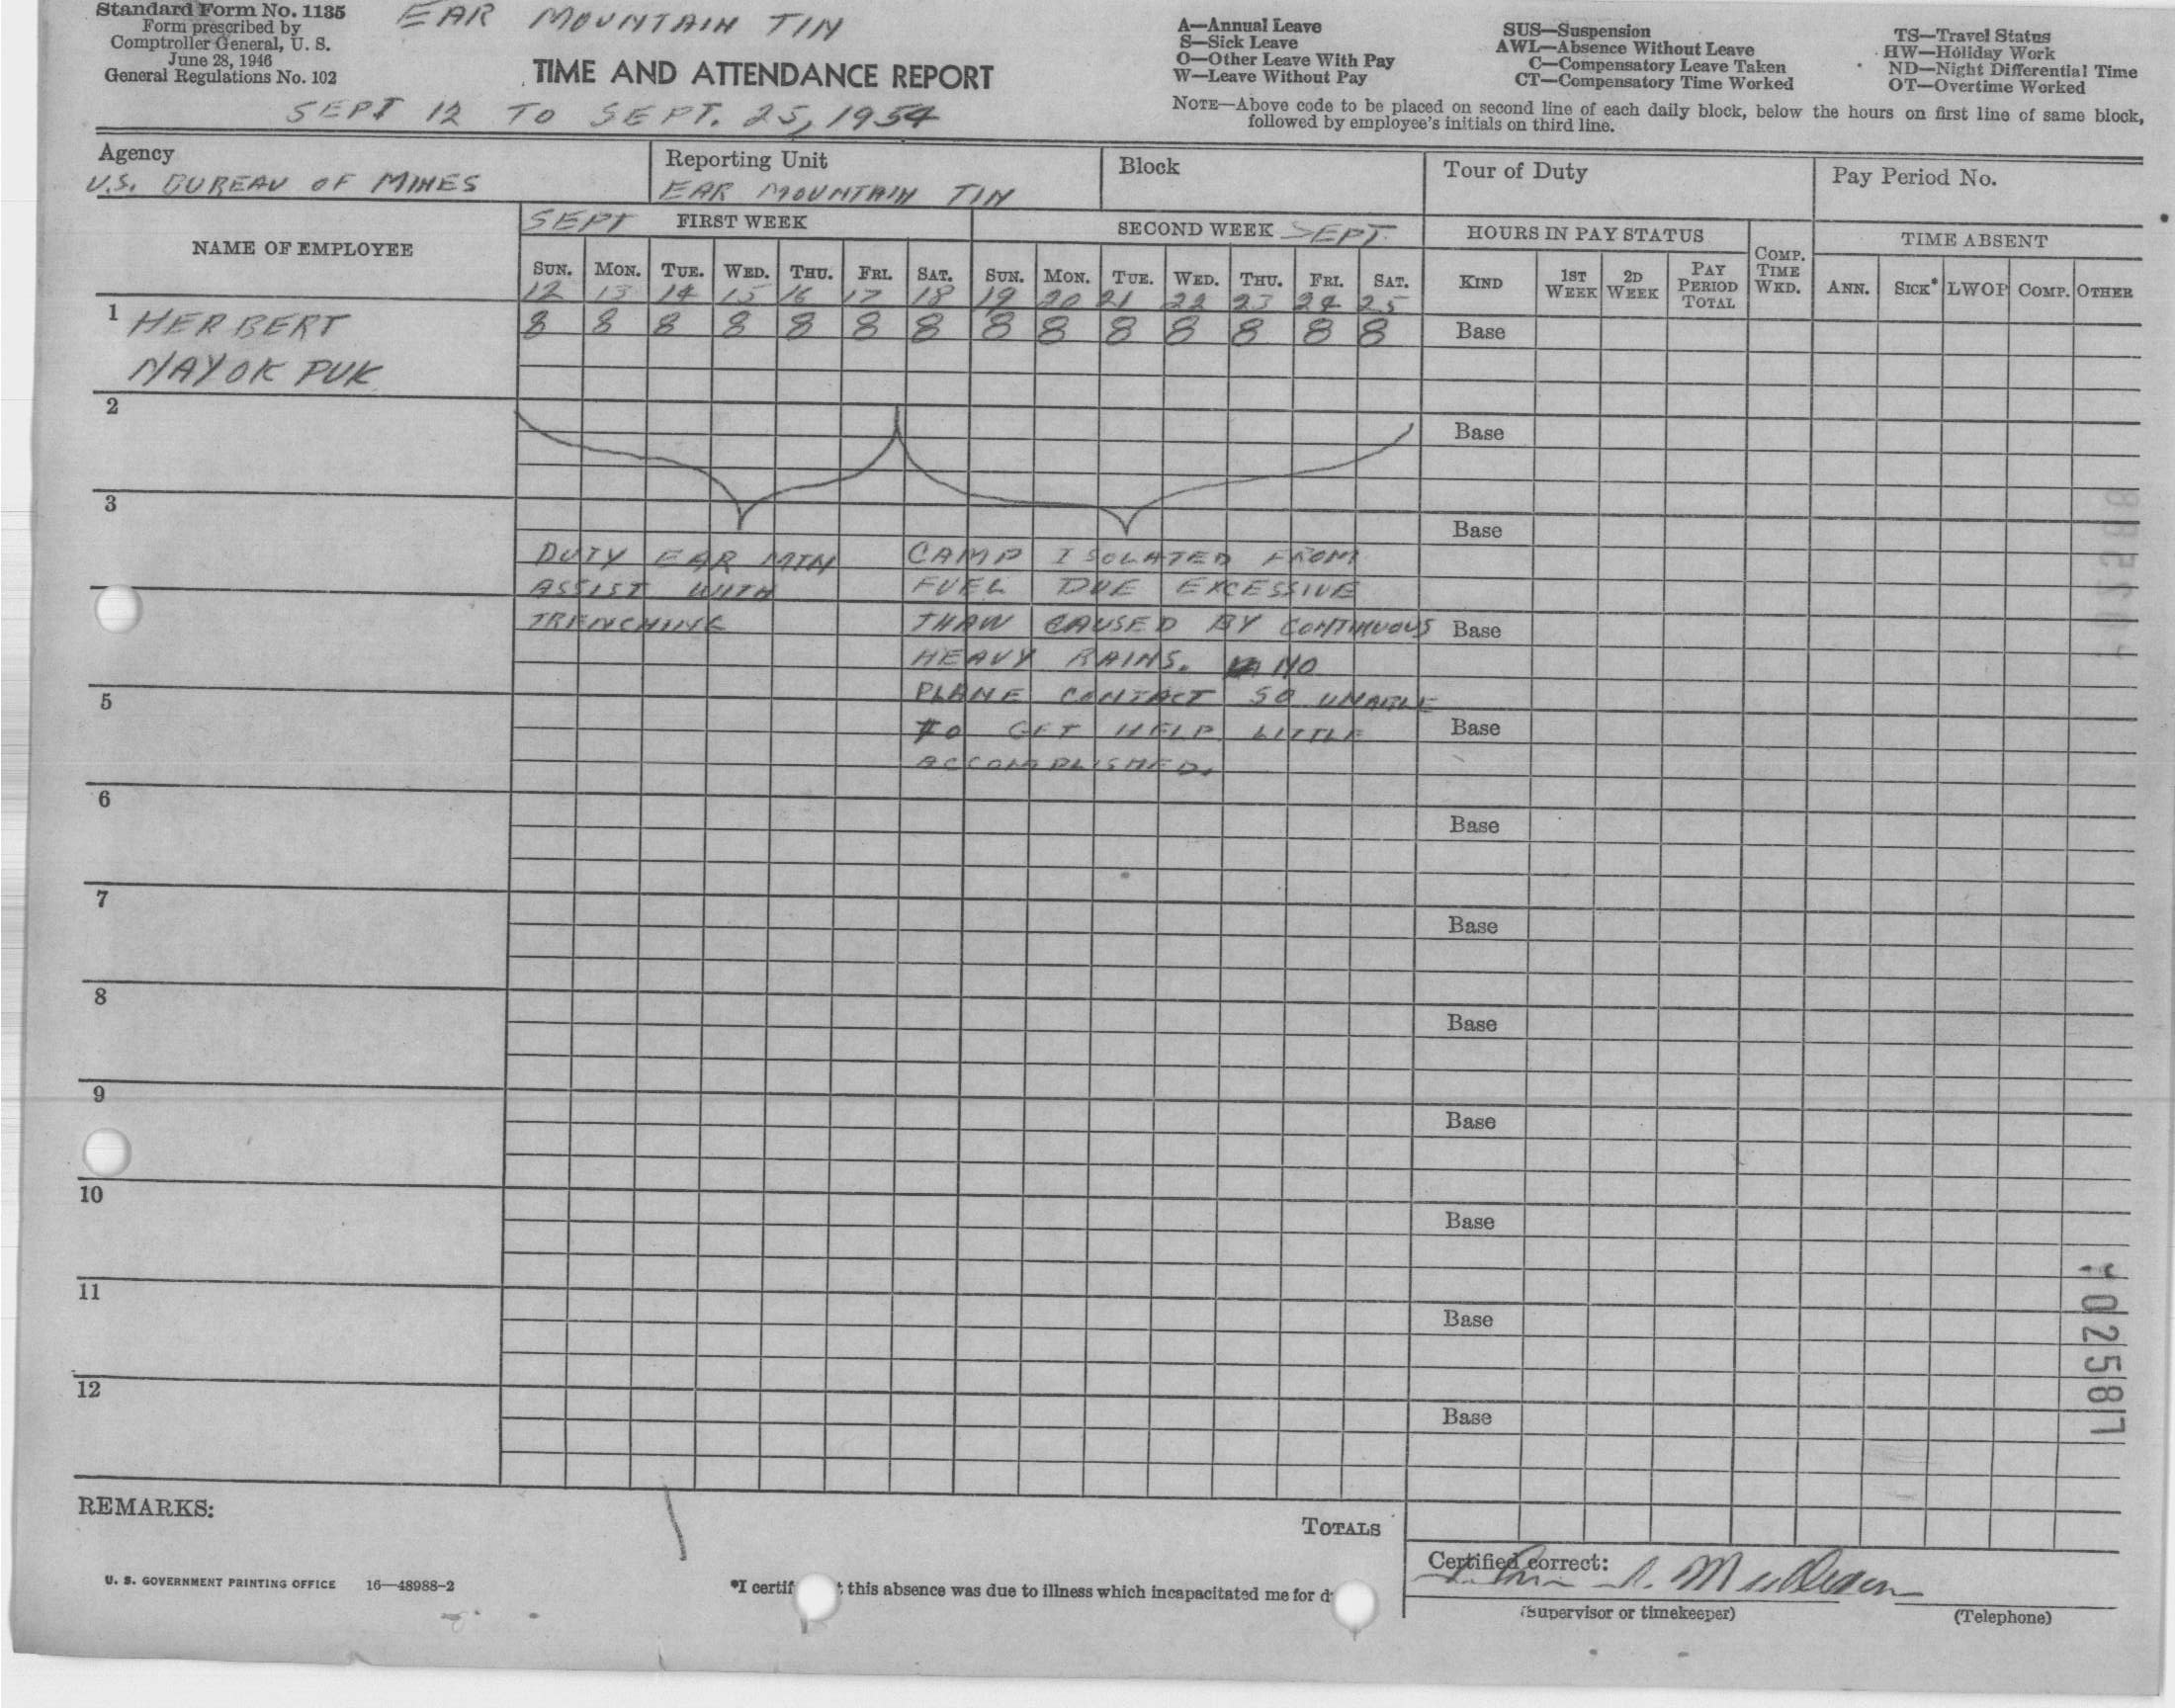 Standard Form No. 1135
Form prescribed by
Comptroller General, U. S.
June 28, 1946
General Regulations No. 102
EAR MOUNTAIN TIN
TIME AND ATTENDANCE REPORT
SEPT 12 TO SEPT. 25, 1954
A—Annual Leave
S—Sick Leave
O—Other Leave With Pay
W—Leave Without Pay
SUS—Suspension
AWL—Absence Without Leave
C—Compensatory Leave Taken
CT—Compensatory Time Worked
TS—Travel Status
HW—Holiday Work
ND—Night Differential Time
OT—Overtime Worked
NOTE—Above code to be placed on second line of each daily block, below the hours on first line of same block,
followed by employee's initials on third line.
Agency
U.S. BUREAU OF MINES
Reporting Unit
EAR MOUNTAIN TIN
Block
Tour of Duty
Pay Period No.
NAME OF EMPLOYEE
SEPT FIRST WEEK
SECOND WEEK SEPT.
HOURS IN PAY STATUS
COMP. TIME WKD.
TIME ABSENT
SUN. MON. TUE. WED. THU. FRI. SAT. SUN. MON. TUE. WED. THU. FRI. SAT.
KIND 1ST WEEK 2D WEEK PAY PERIOD TOTAL
ANN. SICK* LWOP COMP. OTHER
12 13 14 15 16 17 18 19 20 21 22 23 24 25
1 HERBERT 8 8 8 8 8 8 8 8 8 8 8 8 8 8 Base
NAYOK PUK
2 Base
3 Base
DUTY EAR MTN
ASSIST WITH
TRENCHING
CAMP ISOLATED FROM
FUEL DUE EXCESSIVE
THAW CAUSED BY CONTINUOUS
HEAVY RAINS. NO
PLANE CONTACT SO UNABLE
TO GET HELP. LITTLE
ACCOMPLISHED.
Base
5 Base
6 Base
7 Base
8 Base
9 Base
10 Base
11 Base
12 Base
02587
REMARKS:
TOTALS
Certified correct:
(Supervisor or timekeeper)
(Telephone)
U. S. GOVERNMENT PRINTING OFFICE 16—48988-2
*I certif this absence was due to illness which incapacitated me for d